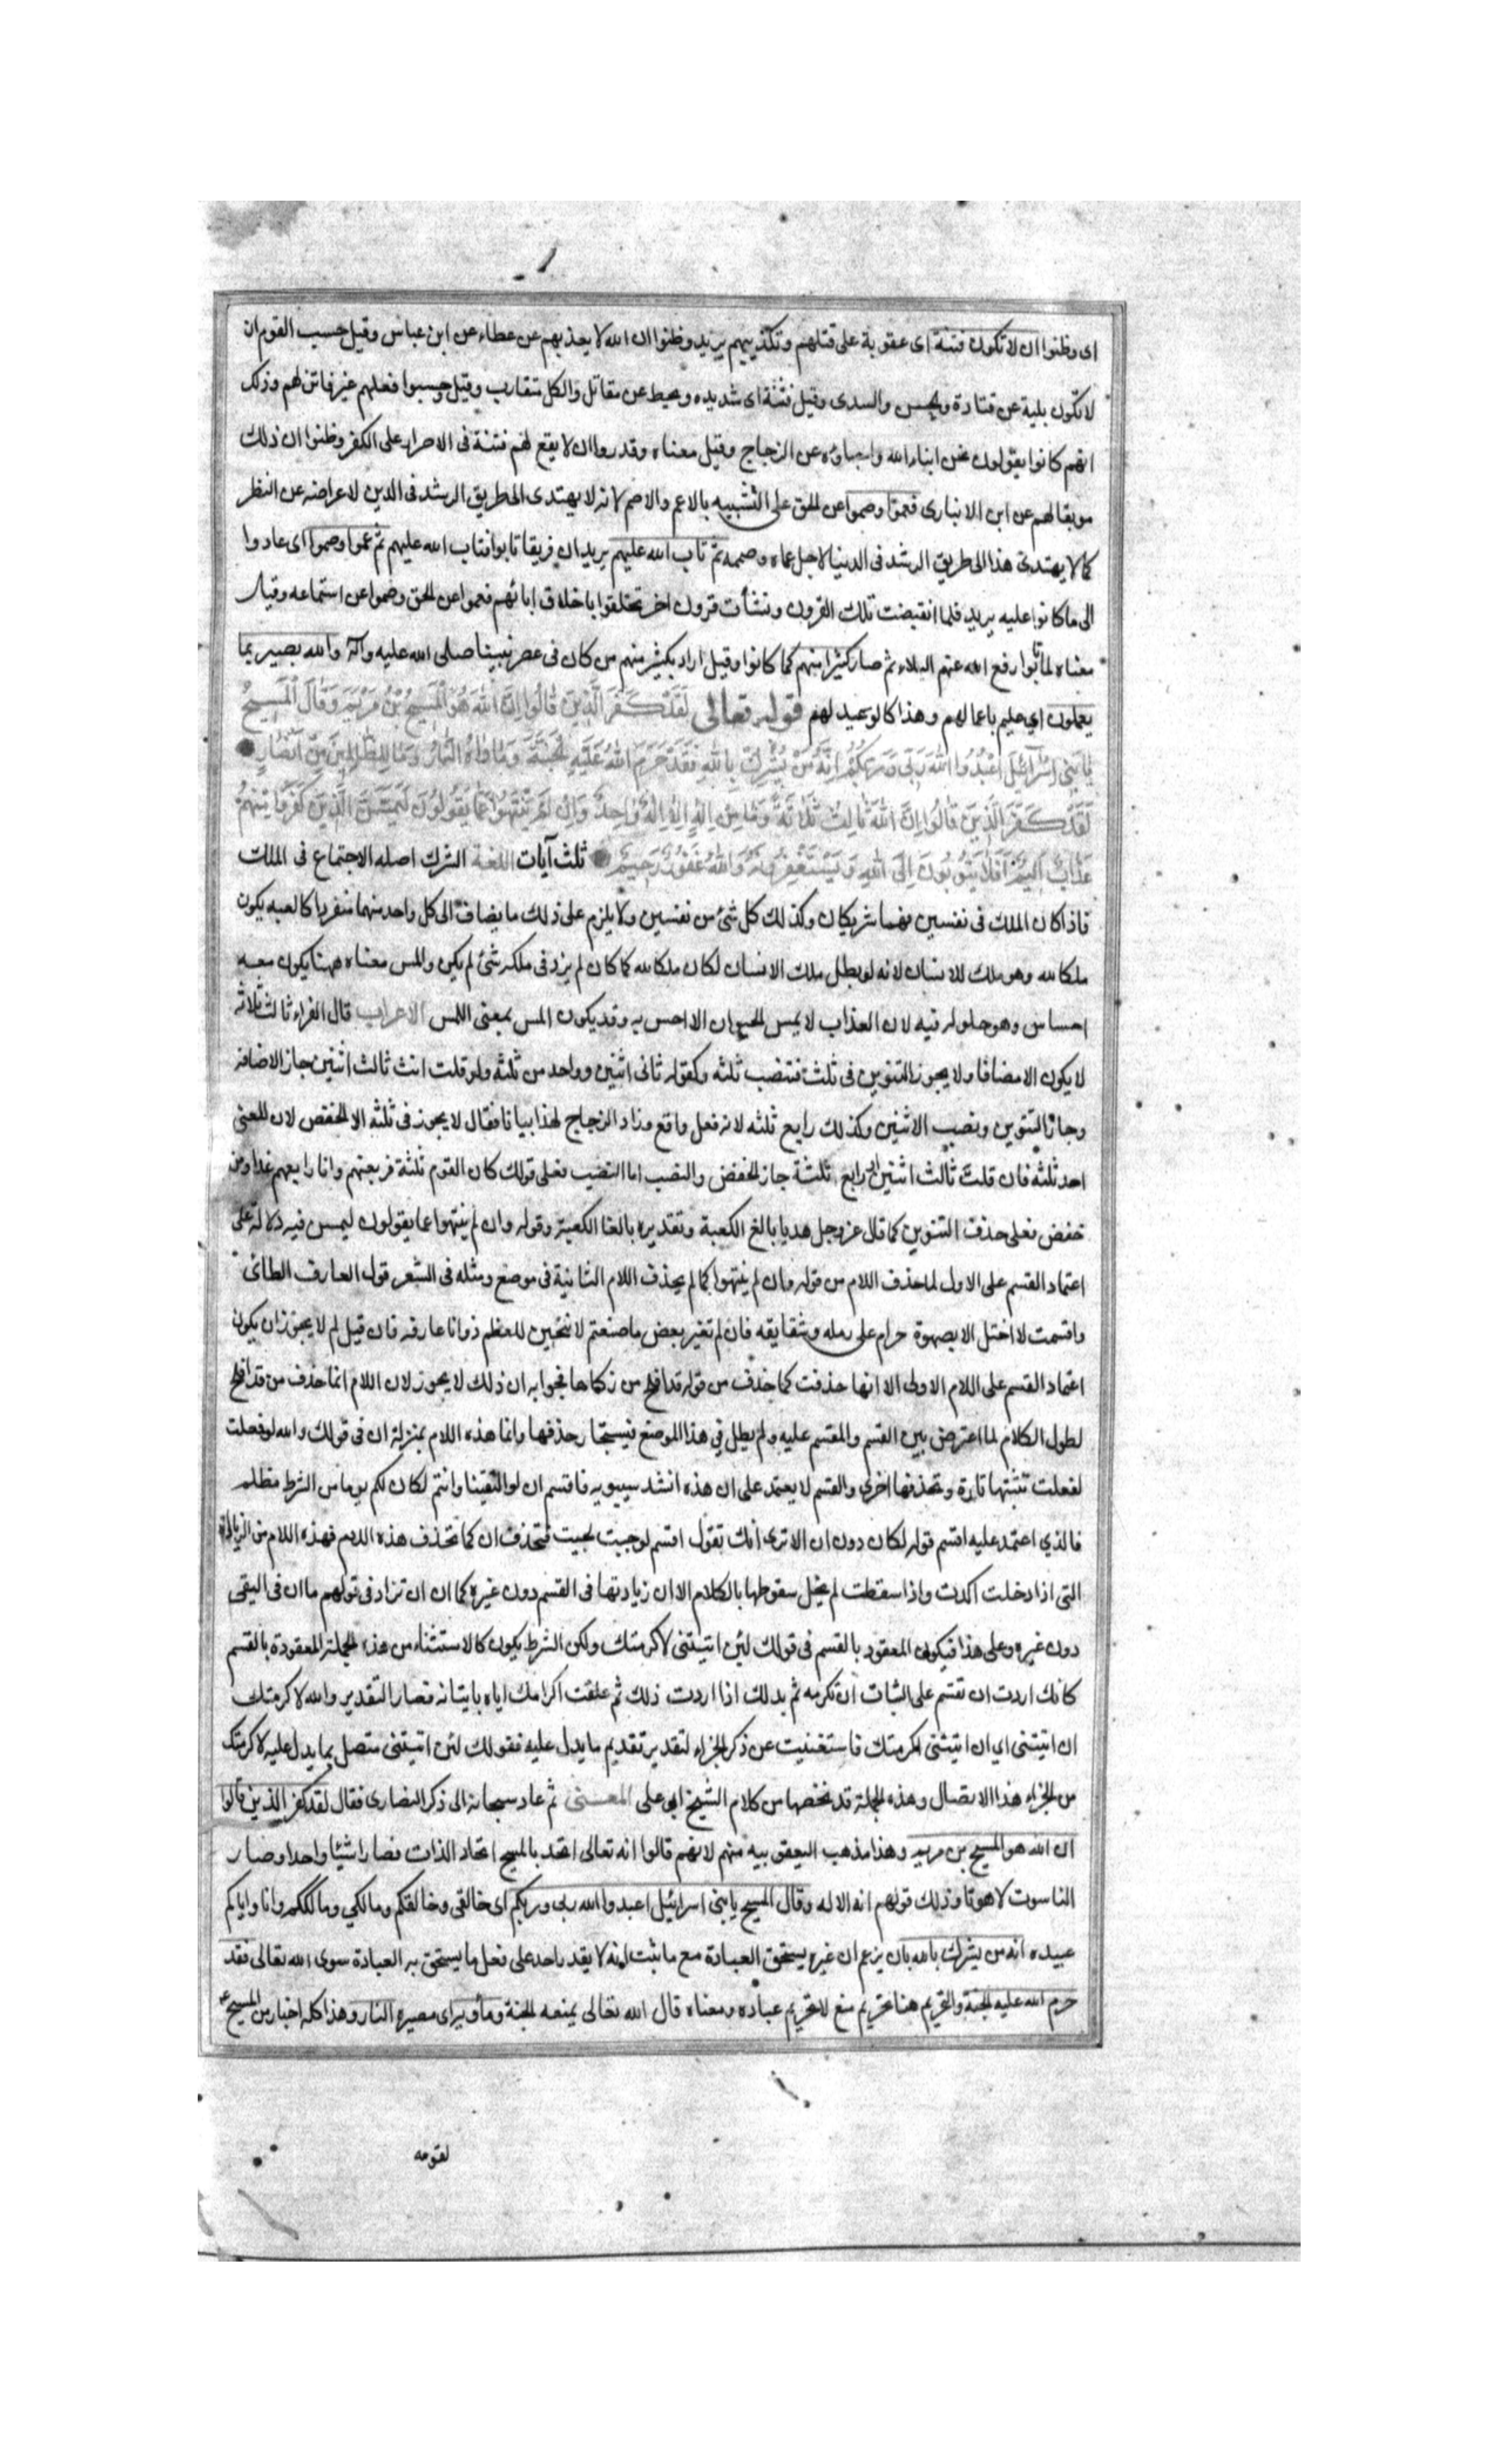 اى وظنوا ان لا تكون فتنة اى عقوبة على قتلهم وتكذيبهم يريد وظنوا ان الله لا يعذبهم عن عطاء عن ابن عباس وقيل حسب القوم ان
لا تكون بلية عن قتادة والحسن والسدى وقيل فتنة اى شديده وعيط عن مقاتل والكل متقارب وقيل وحسبوا فعلهم غير فاتن لهم وذلك
انهم كانوا يقولون نحن ابناء الله واحباؤه عن الزجاج وقيل معناه وقدروا ان لا يقع لهم فتنة فى الاصرار على الكفر وظنوا ان ذلك
موبقا لهم عن ابن الانبارى فعموا وصموا عن الحق على التشبيه بالاعمى والاصم لانه لا يهتدى الى طريق الرشد فى الدين لاعراضه عن النظر
كما لا يهتدى هذا الى طريق الرشد فى الدنيا لاجل عماه وصممه ثم تاب الله عليهم يريد ان فريقا تابوا فتاب الله عليهم ثم عموا وصموا اى عادوا
الى ما كانوا عليه يريد فلما انقبضت تلك القرون ونشات قرون اخر تخلقوا باخلاق ابائهم فعموا عن الحق وصموا عن استماعه وقيل
معناه لما تابوا رفع الله عنهم البلاء ثم صار كثيرا منهم كما كانوا وقيل اراد بكثير منهم من كان فى عصر نبينا صلى الله عليه وآله والله بصير بما
يعملون اى عليم باعمالهم وهذا كالوعيد لهم قوله تعالى لَقَدْ كَفَرَ الَّذِينَ قَالُوا إِنَّ اللهَ هُوَ الْمَسِيحُ بْنُ مَرْيَمَ وَقَالَ الْمَسِيحُ
يَا بَنِى إِسْرَائِيلَ اعْبُدُوا اللهَ رَبِّى وَرَبَّكُمْ إِنَّهُ مَنْ يُشْرِكْ بِاللهِ فَقَدْ حَرَّمَ اللهُ عَلَيْهِ الْجَنَّةَ وَمَأْوَاهُ النَّارُ وَمَا لِلظَّالِمِينَ مِنْ أَنْصَارٍ
لَقَدْ كَفَرَ الَّذِينَ قَالُوا إِنَّ اللهَ ثَالِثُ ثَلَاثَةٍ وَمَا مِنْ إِلَهٍ إِلَّا إِلَهٌ وَاحِدٌ وَإِنْ لَمْ يَنْتَهُوا عَمَّا يَقُولُونَ لَيَمَسَّنَّ الَّذِينَ كَفَرُوا مِنْهُمْ
عَذَابٌ أَلِيمٌ أَفَلَا يَتُوبُونَ إِلَى اللهِ وَيَسْتَغْفِرُونَهُ وَاللهُ غَفُورٌ رَحِيمٌ ثلث آيات اللغة الشرك اصله الاجتماع فى الملك
فاذا كان الملك فى نفسين فهما شريكان وكذلك كل شئ من نفسين ولا يلزم على ذلك ما يضاف الى كل واحد منهما منفردا كالعبد يكون
ملكا لله وهو ملك للانسان لانه لو بطل ملك الانسان لكان ملكا لله كما كان لم يزد فى ملكه شئ لم يكن والمس معناه ههنا يكون معه
احساس وهو حلوله فيه لان العذاب لا يمس الحيوان الا احس به وقد يكون المس بمعنى اللمس الاعراب قال الفراء ثالث ثلاثه
لا يكون الا مضافا ولا يجوز التنوين فى ثلث فتنصب ثلثه وكقوله ثانى اثنين وواحد من ثلثه ولو قلت انت ثالث اثنين جاز الاضافه
وجاز التنوين ونصب الاثنين وكذلك رابع ثلثه لانه فعل واقع وزاد الزجاج لهذا بيانا فقال لا يجوز فى ثلثه الا الخفض لان المعنى
احد ثلثه فان قلت ثالث اثنين او رابع ثلثة جاز الخفض والنصب اما النصب فعلى قولك كان القوم ثلثة فربعتهم وانا رابعهم غدا ومن
خفض فعلى حذف التنوين كما قال عز وجل هديا بالغ الكعبة وتقديره بالغا الكعبة وقوله وان لم ينتهوا عما يقولون ليمسن فيه دلالة على
اعتماد القسم على الاول لما حذف اللام من قوله وان لم ينتهوا كما لم يحذف اللام الثانية فى موضع ومثله فى الشعر قول العارف الطائى
واقسمت لا احتل الا بصهوة حرام على رمله وشقايقه فان لم تغير بعض ما صنعتم لانتحين للعظم ذو انا عارقه فان قيل لم لا يجوز ان يكون
اعتماد القسم على اللام الاولى الا انها حذفت كما حذف من قوله قد افلح من زكاها فجوابه ان ذلك لا يجوز لان اللام انما حذف من قد افلح
لطول الكلام لما اعترض بين القسم والمقسم عليه ولم يطل فى هذا الموضع فيستجاز حذفها وانما هذه اللام بمنزلة ان فى قولك والله لو فعلت
لفعلت تثبتها تارة وتحذفها اخرى والقسم لا يعتمد على ان هذه انشد سيبويه فاقسم ان لو التقينا وانتم لكان لكم يوما من الشرط مظلم
فالذي اعتمد عليه اقسم قوله لكان دون ان الا ترى انك تقول اقسم لو جيت لجيت فتحذف ان كما تحذف هذه اللام فهذه اللام من الزيادة
التى اذا دخلت اكدت واذا سقطت لم يخل سقوطها بالكلام الا ان زيادتها فى القسم دون غيره كما ان ان تزاد فى قولهم ما ان فى النفى
دون غيره وعلى هذا فيكون المعقود بالقسم فى قولك لئن اتيتنى لاكرمتك ولكن الشرط يكون كالاستثناء من هذه الجملة المعقودة بالقسم
كانك اردت ان تقسم على الثبات ان تكرمه ثم بدلك اذا اردت ذلك ثم علقت اكرامك اياه باتيانه فصار التقدير والله لاكرمتك
ان اتيتنى اي ان اتيتنى اكرمتك فاستغنيت عن ذكر الجزاء لتقدير تقديم ما يدل عليه فقولك لئن اتيتنى متصل بما يدل عليه لاكرمتك
من الجزاء هذا الاتصال وهذه الجملة قد لخصها من كلام الشيخ ابى على المعنى ثم عاد سبحانه الى ذكر النصارى فقال لقد كفر الذين قالوا
ان الله هو المسيح بن مريم وهذا مذهب اليعقوبيه منهم لانهم قالوا انه تعالى اتحد بالمسيح اتحاد الذات فصارا شيئا واحدا وصار
الناسوت لاهوتا وذلك قولهم انه الاله وقال المسيح يا بنى اسرائيل اعبدوا الله ربى وربكم اى خالقى وخالقكم ومالكي ومالككم وانا واياكم
عبيده انه من يشرك بالله بان يزعم ان غيره يستحق العبادة مع ما ثبت انه لا يقدر احد على فعل ما يستحق به العبادة سوى الله تعالى فقد
حرم الله عليه الجنة والتحريم هنا تحريم منع لا تحريم عباده ومعناه قال الله تعالى يمنعه الجنة وماويه اى مصيره النار وهذا كله اخبار من المسيح ع
لقومه